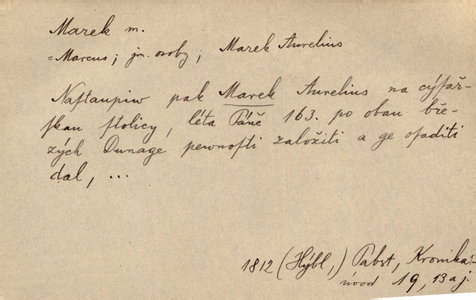 Marek m.
= Marcus; jm. osoby; Marek Aurelius
Naſtaupiw pak Marek Aurelius na cýſař-
ſkau ſtolicy, léta Páně 163. po obau bře-
zých Dunage pewnoſti založiti a ge oſaditi
dal, ...
1812 (Hýbl,) Pabst, Kronika
úvod 19, Baj